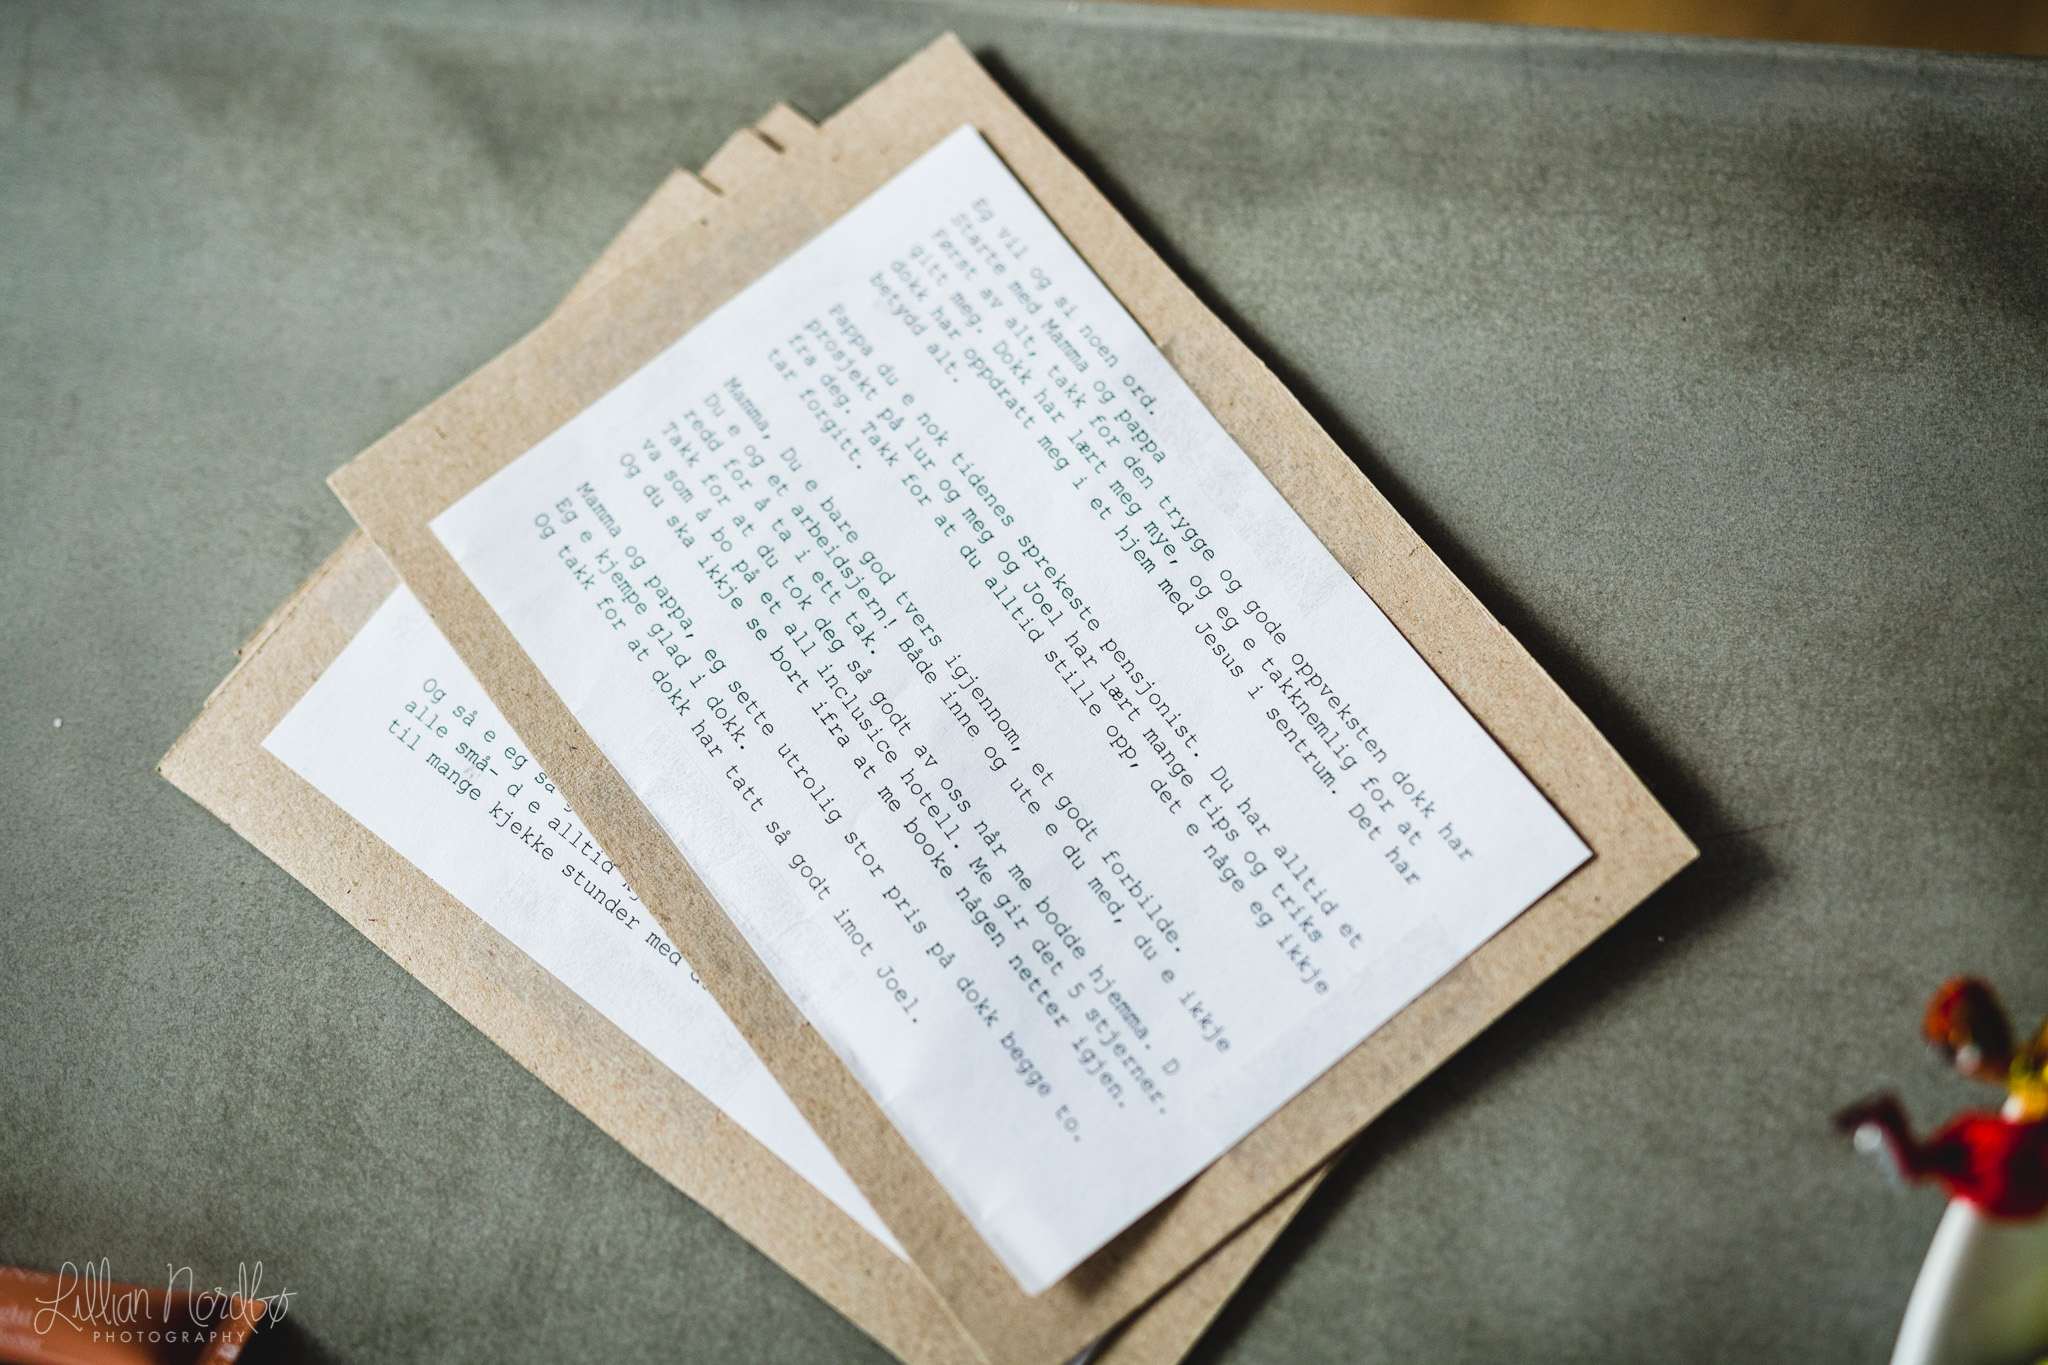 Eg vil og si noen ord.
Starte med Mamma og pappa
Først av alt, takk for den trygge og gode oppveksten dokk har
gitt meg. Dokk har lært meg mye, og eg e takknemlig for at
dokk har oppdratt meg i et hjem med Jesus i sentrum. Det har
betydd alt.
Pappa du e nok tidenes sprekeste pensjonist. Du har alltid et
prosjekt på lur og meg og Joel har lært mange tips og triks
fra deg. Takk for at du alltid stille opp, det e någe eg ikkje
tar forgitt.
Mamma, Du e bare god tvers igjennom, et godt forbilde.
Du e og et arbeidsjern! Både inne og ute e du med, du e ikkje
redd for å ta i ett tak.
Takk for at du tok deg så godt av oss når me bodde hjemma. D
va som å bo på et all inclusice hotell. Me gir det 5 stjerner.
Og du ska ikkje se bort ifra at me booke någen netter igjen.
Mamma og pappa, eg sette utrolig stor pris på dokk begge to.
Eg e kjempe glad i dokk.
Og takk for at dokk har tatt så godt imot Joel.
Og så e eg så
alle små- d e alltid
til mange kjekke stunder med
Lillian Nordbø
PHOTOGRAPHY